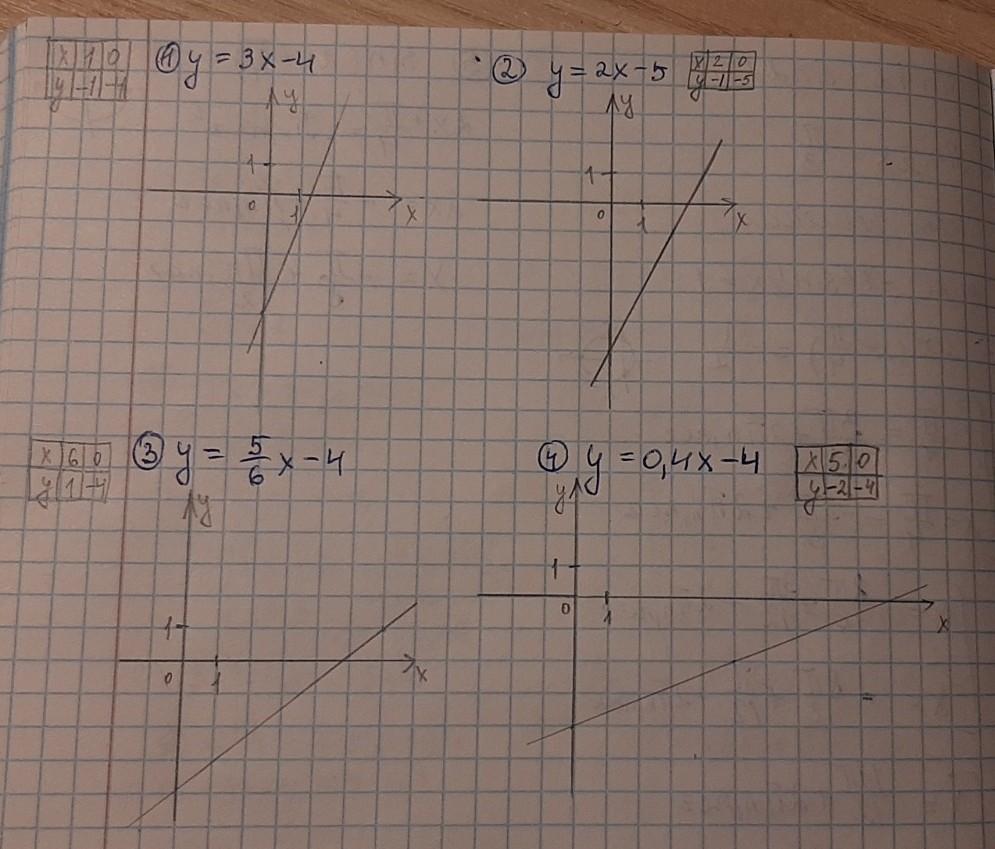 x 1 0
y -1 -4
① y = 3x - 4
y
1
0 1 x
② y = 2x - 5
x 2 0
y -1 -5
y
1
0 1 x
x 6 0
y 1 -4
③ y = 5/6 x - 4
y
1
0 1 x
④ y = 0,4x - 4
x 5 0
y -2 -4
y
1
0 1 x